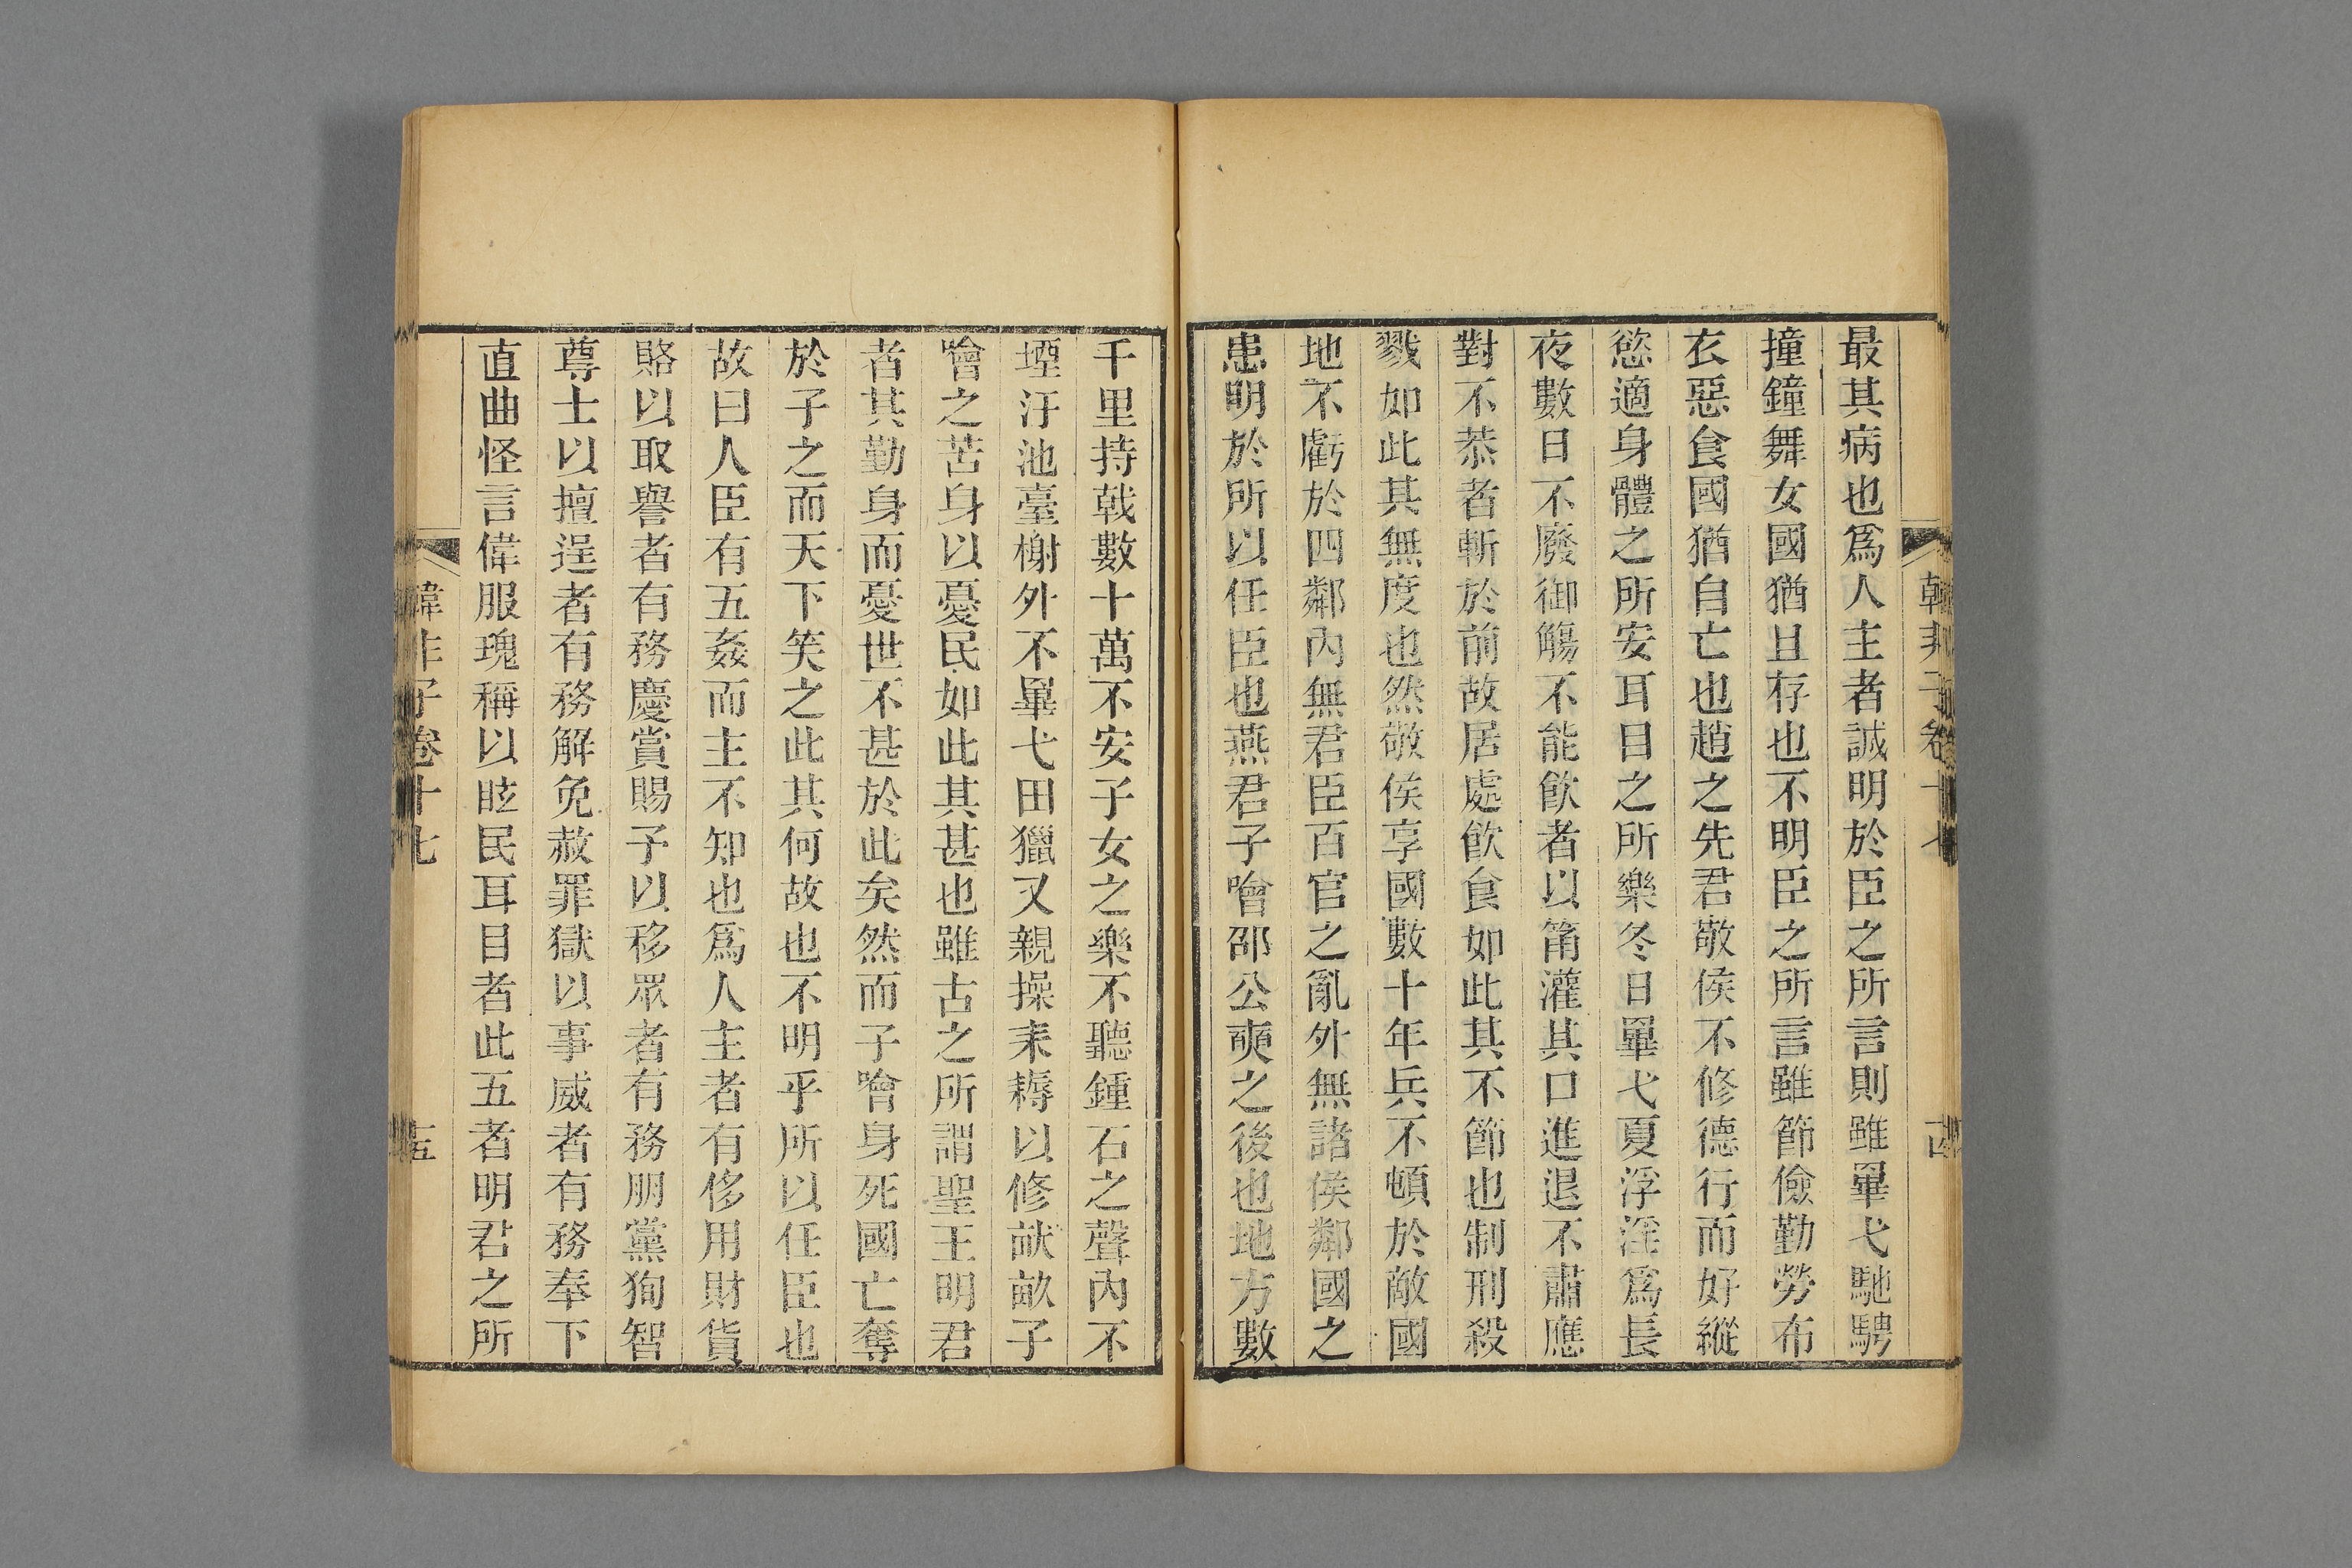 韓非子卷十七
十四
最其病也爲人主者誠明於臣之所言則雖畢弋馳騁
撞鐘舞女國猶且存也不明臣之所言雖節儉勤勞布
衣惡食國猶自亡也趙之先君敬侯不修德行而好縱
慾適身體之所安耳目之所樂冬日畢弋夏浮淫爲長
夜數日不廢御觴不能飲者以筩灌其口進退不肅應
對不恭者斬於前故居處飲食如此其不節也制刑殺
戮如此其無度也然敬侯享國數十年兵不頓於敵國
地不虧於四鄰內無君臣百官之亂外無諸侯鄰國之
患明於所以任臣也燕君子噲邵公奭之後也地方數
千里持戟數十萬不安子女之樂不聽鍾石之聲內不
堙汙池臺榭外不畢弋田獵又親操耒耨以修畎畝子
噲之苦身以憂民如此其甚也雖古之所謂聖王明君
者其勤身而憂世不甚於此矣然而子噲身死國亡奪
於子之而天下笑之此其何故也不明乎所以任臣也
故曰人臣有五姦而主不知也爲人主者有侈用財貨
賂以取譽者有務慶賞賜予以移眾者有務朋黨狥智
尊士以擅逞者有務解免赦罪獄以事威者有務奉下
直曲怪言偉服瑰稱以眩民耳目者此五者明君之所
韓非子卷十七
十五